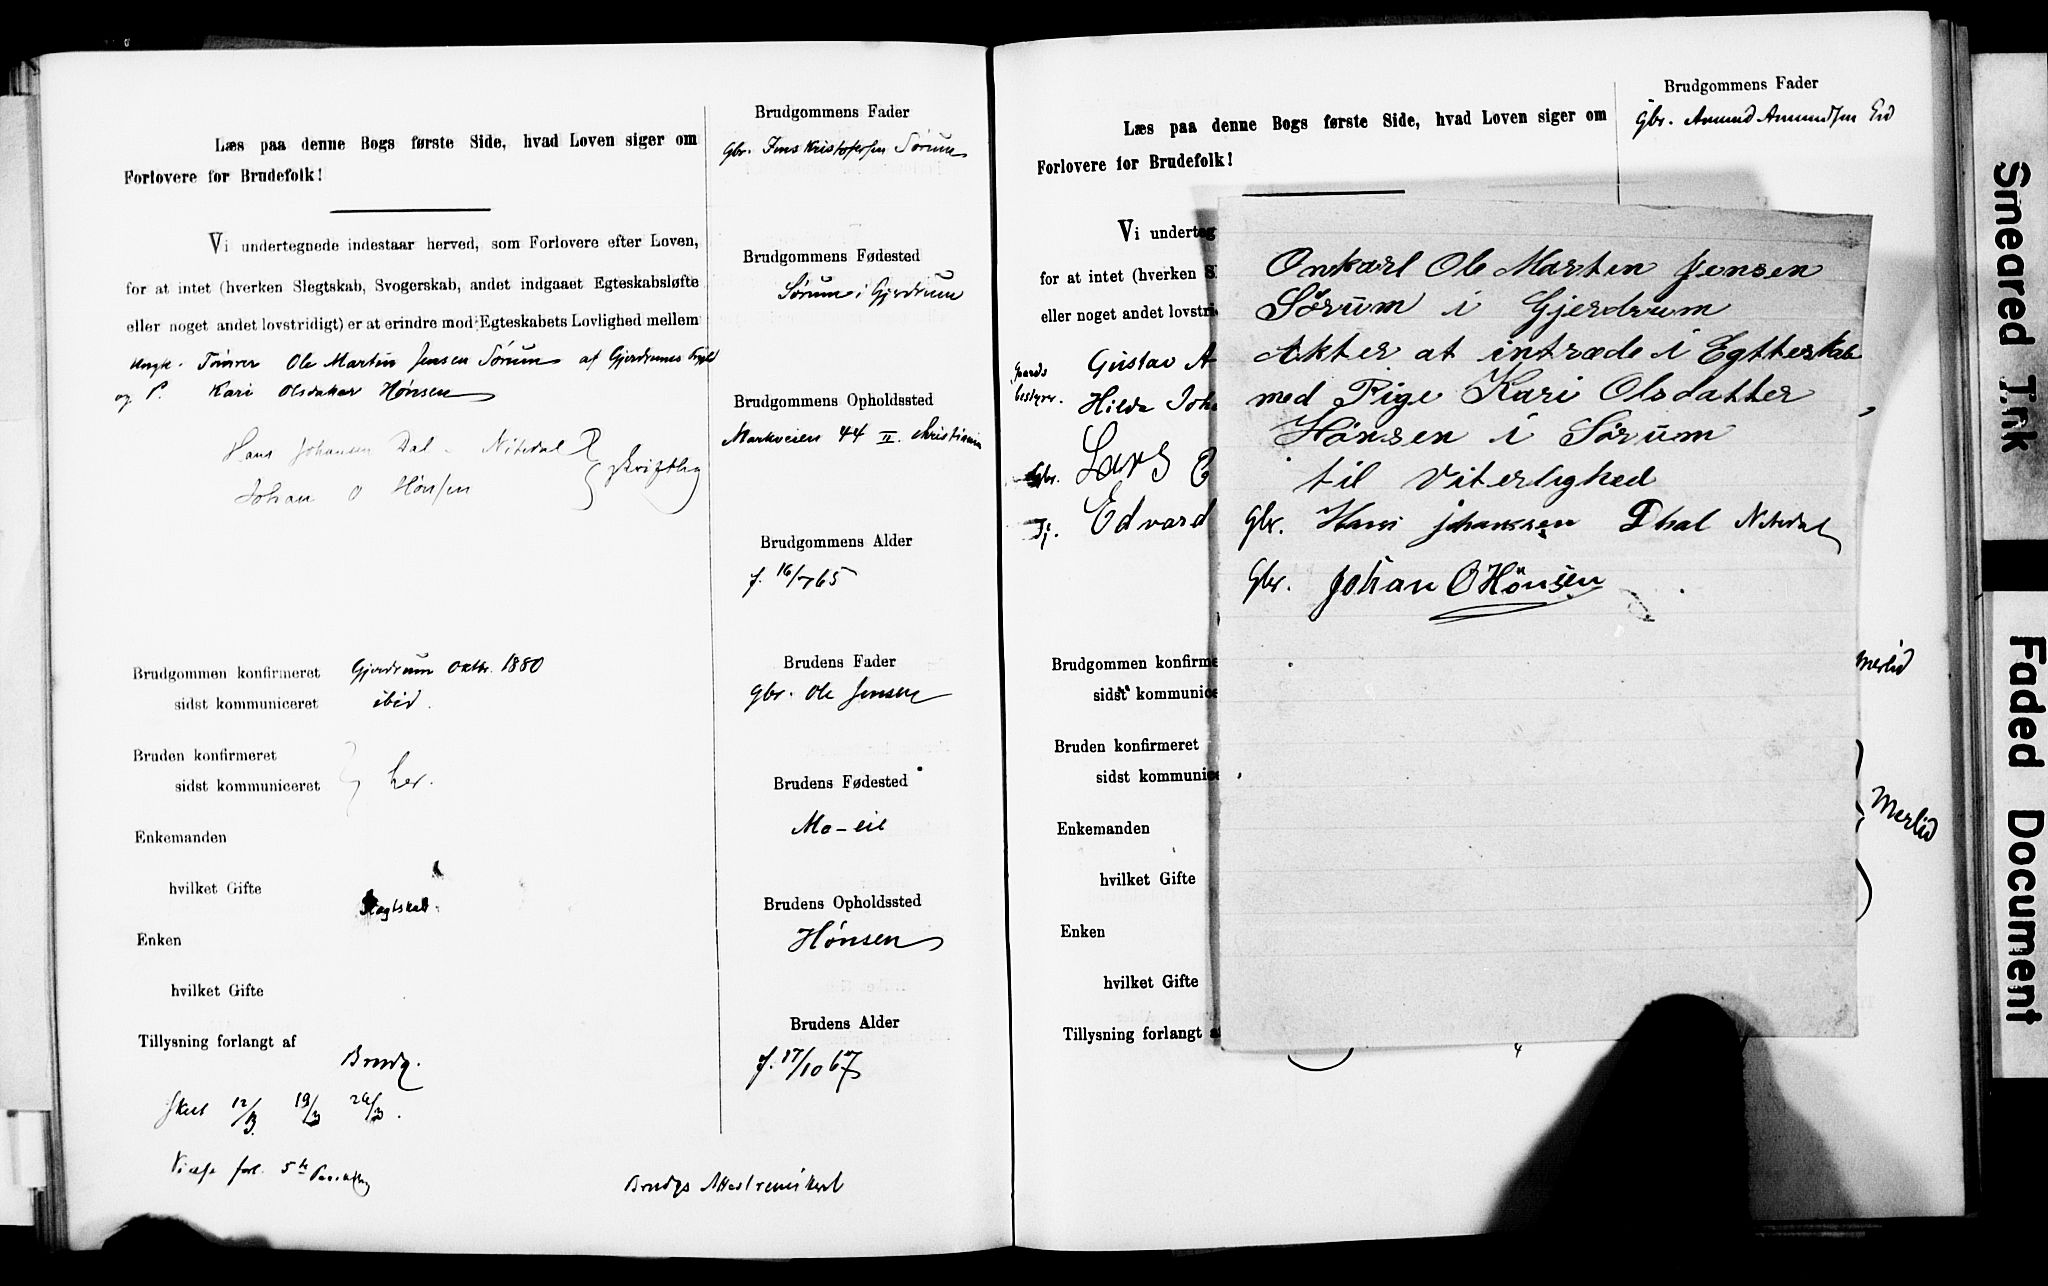 Læs paa denne Bogs første Side, hvad Loven siger om
Forlovere for Brudefolk!
Vi undertegnede indestaar herved, som Forlovere efter Loven,
for at intet (hverken Slegtskab, Svogerskab, andet indgaaet Egteskabsløfte
eller noget andet lovstridigt) er at erindre mod Egteskabets Lovlighed mellem
Ungk. Tømrer Ole Martin Jensen Sørum af Gjerdrums
og P. Kari Olsdatter Hønsen
Hans Johansen Dal - Nitedal
Johan O Hønsen
skriftlig
Brudgommen konfirmeret Gjerdrum Oktbr. 1880
sidst kommuniceret ibid.
Bruden konfirmeret
sidst kommuniceret her.
Enkemanden
hvilket Gifte
Slegtskab
Enken
hvilket Gifte
Tillysning forlangt af
Brudg.
skeet 12/3 19/3 26/3.
Brudgommens Fader
Gbr. Jens Kristofersen Sørum
Brudgommens Fødested
Sørum i Gjerdrum
Brudgommens Opholdssted
Markveien 44 II. Christiania
Brudgommens Alder
f. 16/7 65
Brudens Fader
Gbr. Ole Jensen
Brudens Fødested
Mo-eie
Brudens Opholdssted
Hønsen
Brudens Alder
f. 17/10 67
Læs paa denne Bogs første Side, hvad Loven siger om
Forlovere for Brudefolk!
Brudgommens Fader
Gbr. Amund Amundsen Eid
Vi underteg
for at intet (hverken S
eller noget andet lovstri
Gaards
bestyrer.
Gustav A
Hilda Joha
Gbr. Lars
Edvard
Brudgommen konfirme
sidst kommunice
Bruden konfirmeret
sidst kommunice
Enkemanden
hvilket Gifte
Enken
hvilket Gifte
Tillysning forlangt a
Onkarl Ole Martin Jensen
Sørum i Gjerdrum
Akter at intræde i Egtteskab
med Pige Kari Olsdatter
Hønsen i Sørum
til Viterlighed
Gbr. Hans Johanssen Dhal Nitedal
Gbr. Johan O Hönsen
Smeared Ink
Faded Document